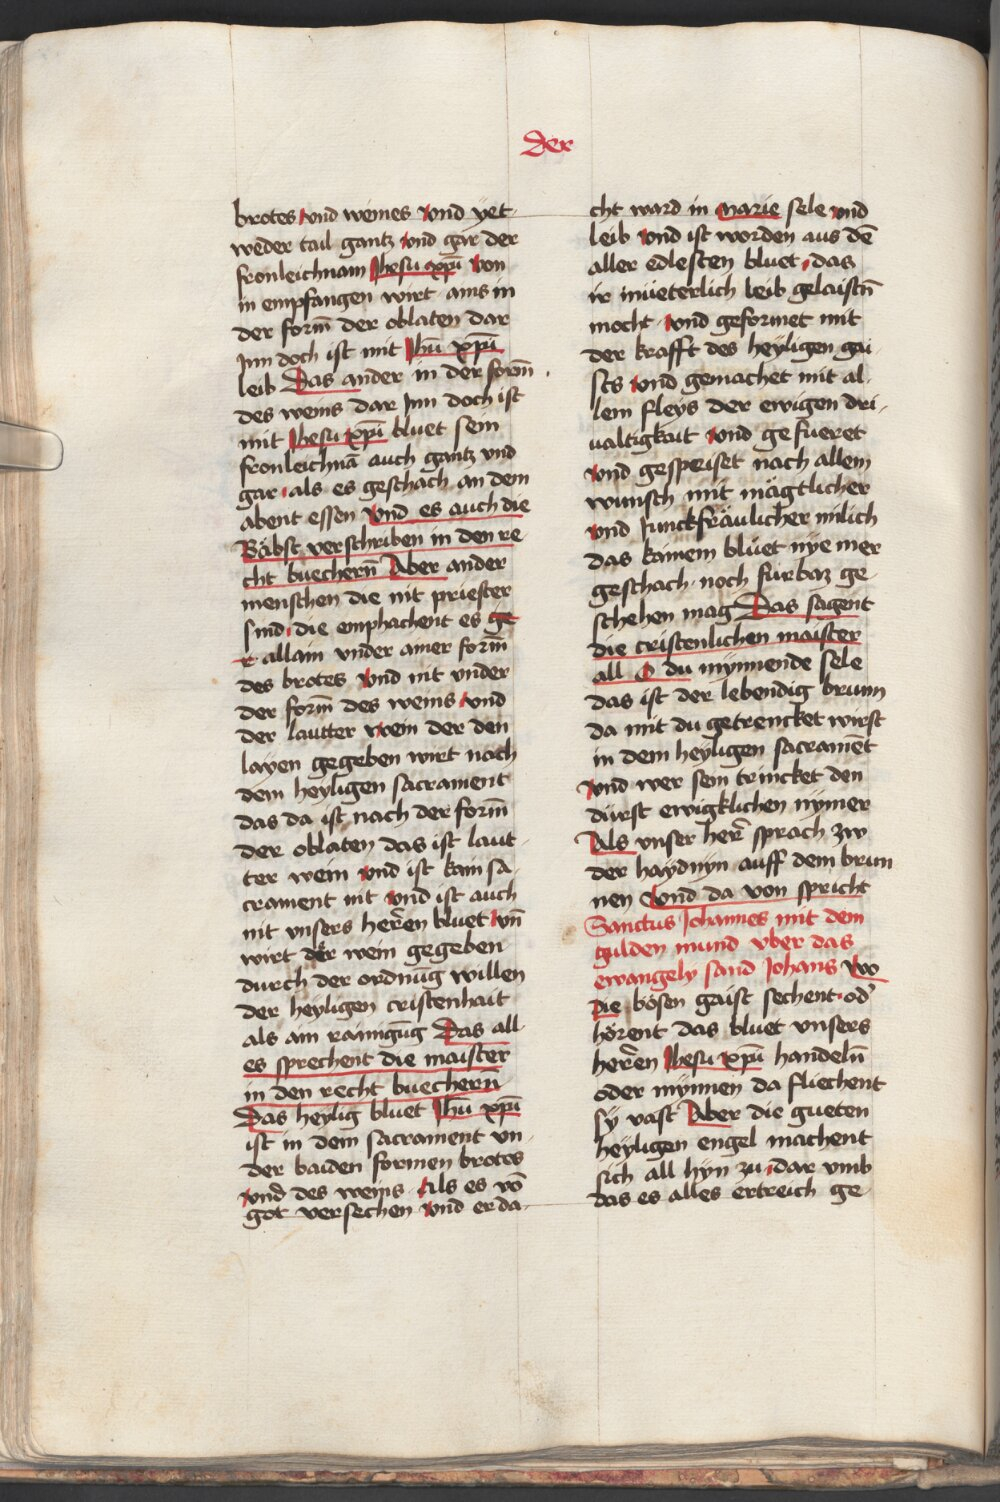 der
brotes vnd weines vnd yet
weder tail gantz vnd gar der
fronleichnam Jhesu xp̄ı von
in empfangen wirt · ains in
der form̄ der oblaten dar
Jnn doch ist mit Jhū xp̄ı
leib Das ander in der form̄
des weins dar Jnn doch ist
mit Jhesu xp̄ı bluet sein
fronleichnā auch gantz vnd
gar · als es geschach an dem
abent essen vnd es auch die
Bäbst verschriben in den re
cht buechern̄ Aber ander
menschen die nit priester
sind · die emphachent es ge
r allain vnder ainer form̄
des brotes vnd nit vnder
der form̄ des weins vnd
der lautter wein der den
layen gegeben wirt nach
dem heyligen sacrament
das da ist nach der form̄
der oblaten das ist laut
ter wein vnd ist kain sa
crament nit vnd ist auch
nit vnsers her̄en bluet vn̄
wirt der wein gegeben
durch der ordnūg willen
der heyligen cristenhait
als ain rainigūg Das all
es sprechent die maister
in den recht buechern̄
Das heylig bluet Jhū xp̄ı
ist in dem sacrament vn
der baiden formen brotes
vnd des weins · Als es vō
got versechen vnd er da
cht ward in marie sele vnd
leib vnd ist worden aus dē
aller edlesten bluet · das
ir müeterlich leib gelaistn̄
mocht · vnd geformet mit
der krafft des heyligen gai
sts vnd gemachet mit al
lem fleys der ewigen dri
ualtigkait vnd gefueret
vnd gespeiset nach allem
wunsch mit mägtlicher
vnd Junckfräulicher milich
das kainem blüet nye mer
geschach · noch furbaz ge
schehen mag Das sagent
die cristenlichen maister
all O du mynnende sele
das ist der lebendig brunn
da mit du getrencket wirst
in dem heyligen sacramēt
vnd wer sein trincket den
dürst ewigklichen nymer
Als vnser her̄ sprach zw
der haydnyn auff dem brun
nen vnd da von spricht
Sanctus Johannes mit dem
gulden mund vber das
ewangely sand Johans wo
die bösen gaist sechent · od'
hörent das bluet vnsers
her̄en Jhesu xp̄ı handeln̄
oder mynnen da fliechent
sy vast Aber die gueten
heyligen engel machent
sich all hyn zu · dar vmb
das es alles ertreich ge